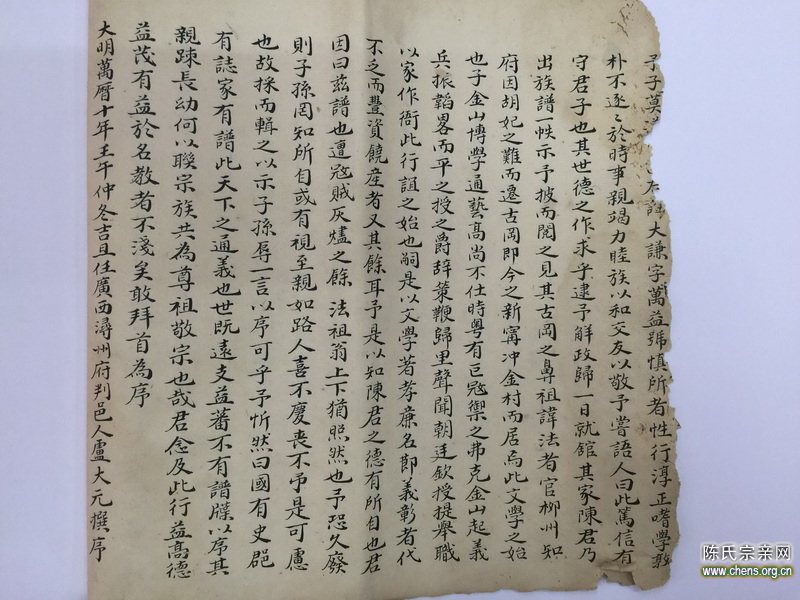 大謙字萬益號慎所者性行淳正嗜學敦
朴不逐〻於時事親竭力睦族以和交友以敬予嘗語人曰此篤信有
守君子也其世德之作求乎逮予解政歸一日就舘其家陳君乃
出族譜一帙示予披而閱之見其古岡之鼻祖諱法者官柳州知
府因胡妃之難而遷古岡即今之新寗冲金村而居焉此文學之始
也子金山博學通藝高尚不仕時粤有巨寇禦之弗克金山起義
兵振韜畧而平之授之爵辞策鞭歸里聲聞朝廷欽授提舉職
以家作衙此行誼之始也嗣是以文學著孝廉名節義彰者代
不乏而豐資饒産者又其餘耳予是以知陳君之德有所自也君
因曰兹譜也遭寇賊灰燼之餘 法祖翁上下猶照然也予恐久廢
則子孫罔知所自或有視至親如路人喜不慶丧不吊是可慮
也故採而輯之以示子孫辱一言以序可乎予忻然曰國有史郡
有誌家有譜此天下之通義也世既遠支益蕃不有譜牒以序其
親踈長幼何以聯宗族共為尊祖敬宗也哉君念及此行益高德
益茂有益於名教者不淺矣敢拜首為序
大明萬曆十年壬午仲冬吉旦任廣西潯州府判邑人盧大元撰序
陈氏宗亲网
www.chens.org.cn